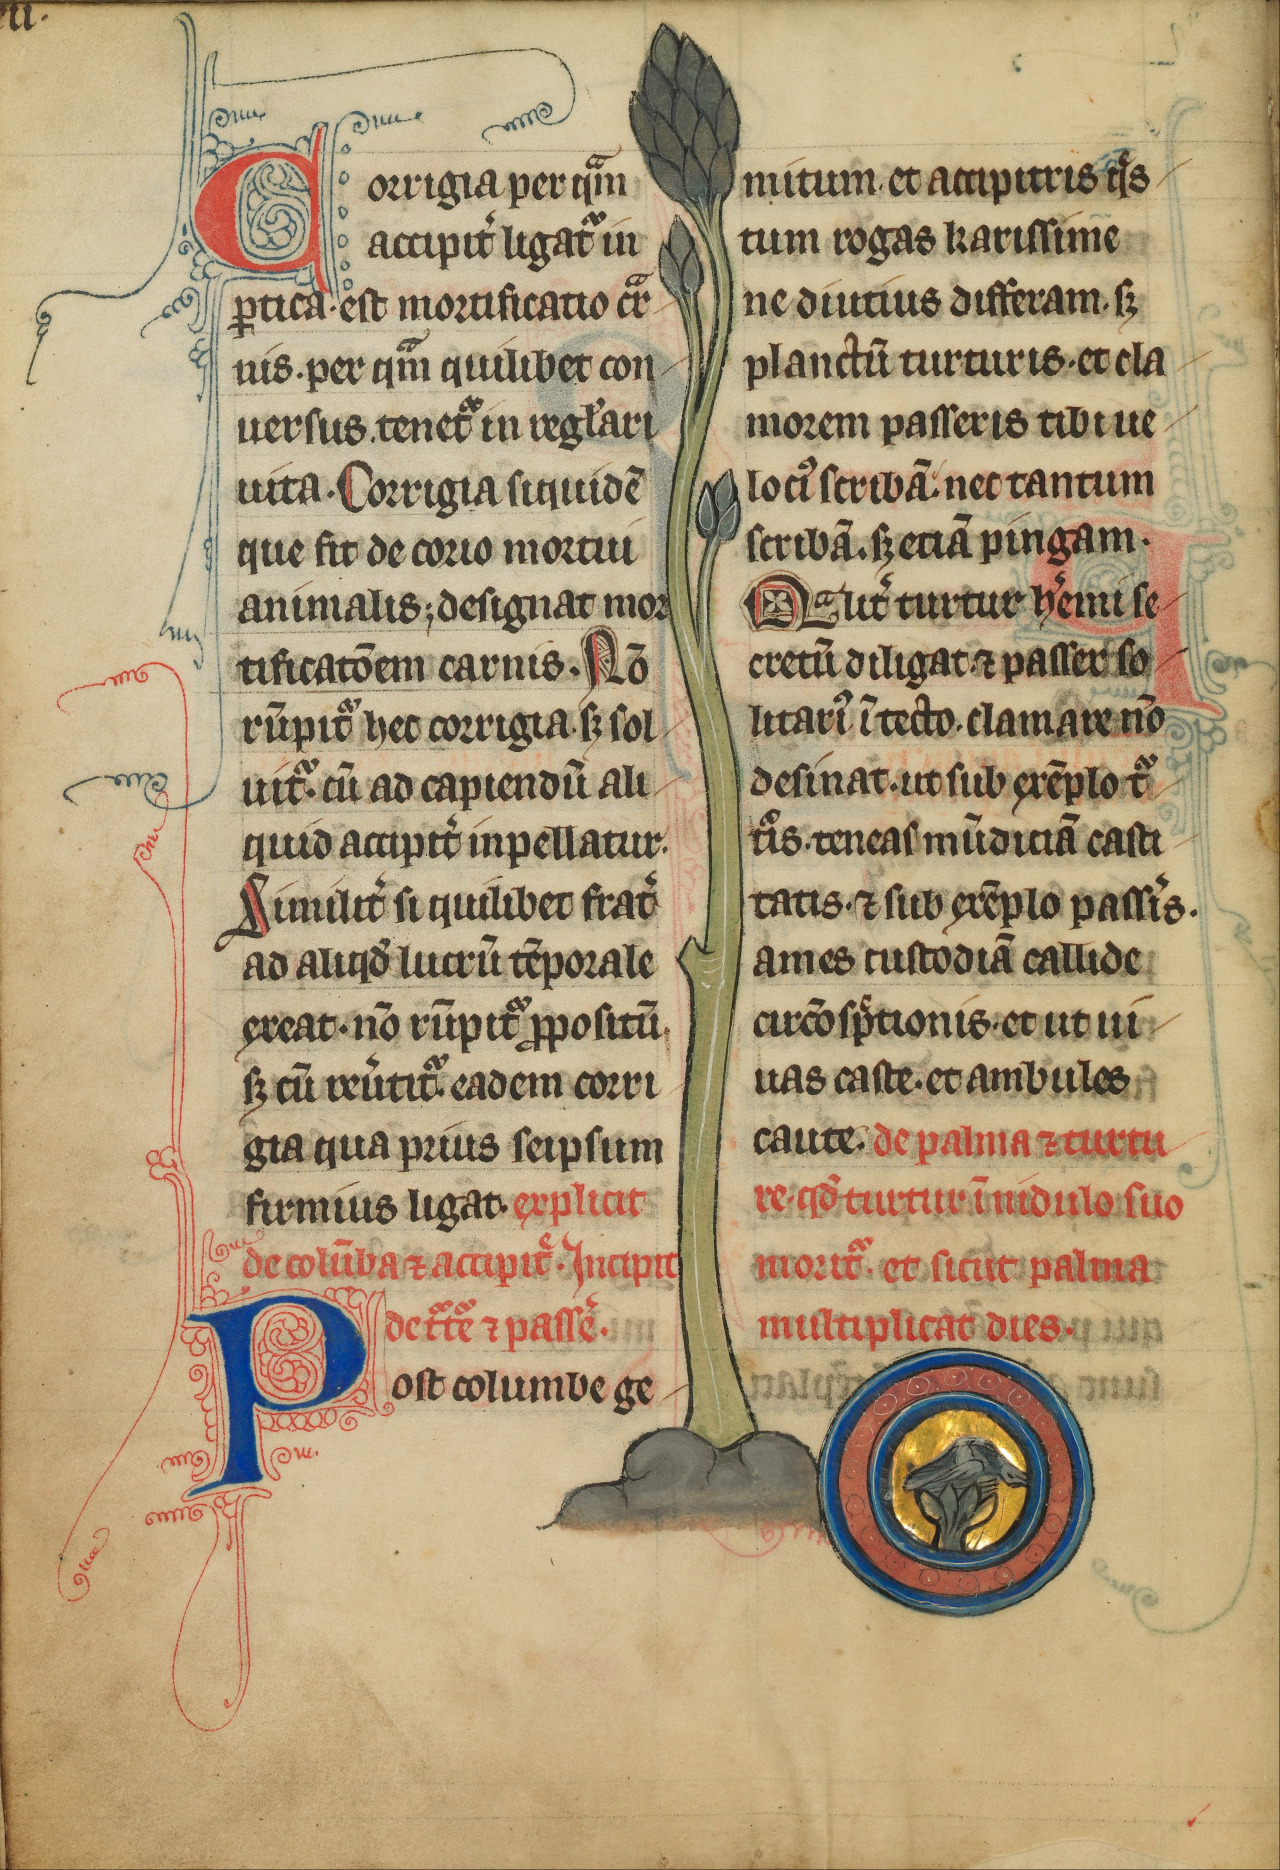 Corrigia per qᷓm
accipit᷑ ligat᷑ in
ꝑtica. est mortificatio cᷓr
nis. per qᷓm quilibet con
uersus. tenet᷑ in regl’ari
uita. Corrigia siquidē
que fit de corio mortui
animalis; designat mor
tificatōem carnis. Nō
rūpit᷑ hec corrigia. sꝫ sol
uit᷑. cū ad capiendū ali
quid accipit᷑ inpellatur.
Similit᷑ si quilibet frat᷑
ad aliqd̛ lucrū tēporale
exeat. nō rūpit᷑ ꝓpositū.
sꝫ cū reu᷑tit᷑. eadem corri
gia qua prius seipsum
firmius ligat. explicit
de colūba ⁊ accipit᷑. Incipit
de t᷑t᷑e ⁊ passe᷑.
Post columbe ge
mitum. et accipitris qͥs
tum rogas karissime
ne diutius differam. sꝫ
planctū turturis. et cla
morem passeris tibi ue
locꝰ scribā. nec tantum
scribā. sꝫ etiā pingam.
Qͣlit᷑ turtur hy᷑emi se
cretū diligat. ⁊ passer so
litariꝰ ī tecto. clamare nō
desinat. ut sub exēplo t᷑
tͥs. teneas mūdiciā casti
tatis. ⁊ sub exēplo passi᷑s.
ames custodiā callide
circōsp̄ctionis. et ut ui
uas caste. et ambules
caute. de palma ⁊ turtu
re. qd̛ turtur ī nidulo suo
morit᷑. et sicut palma
multiplicat dies.